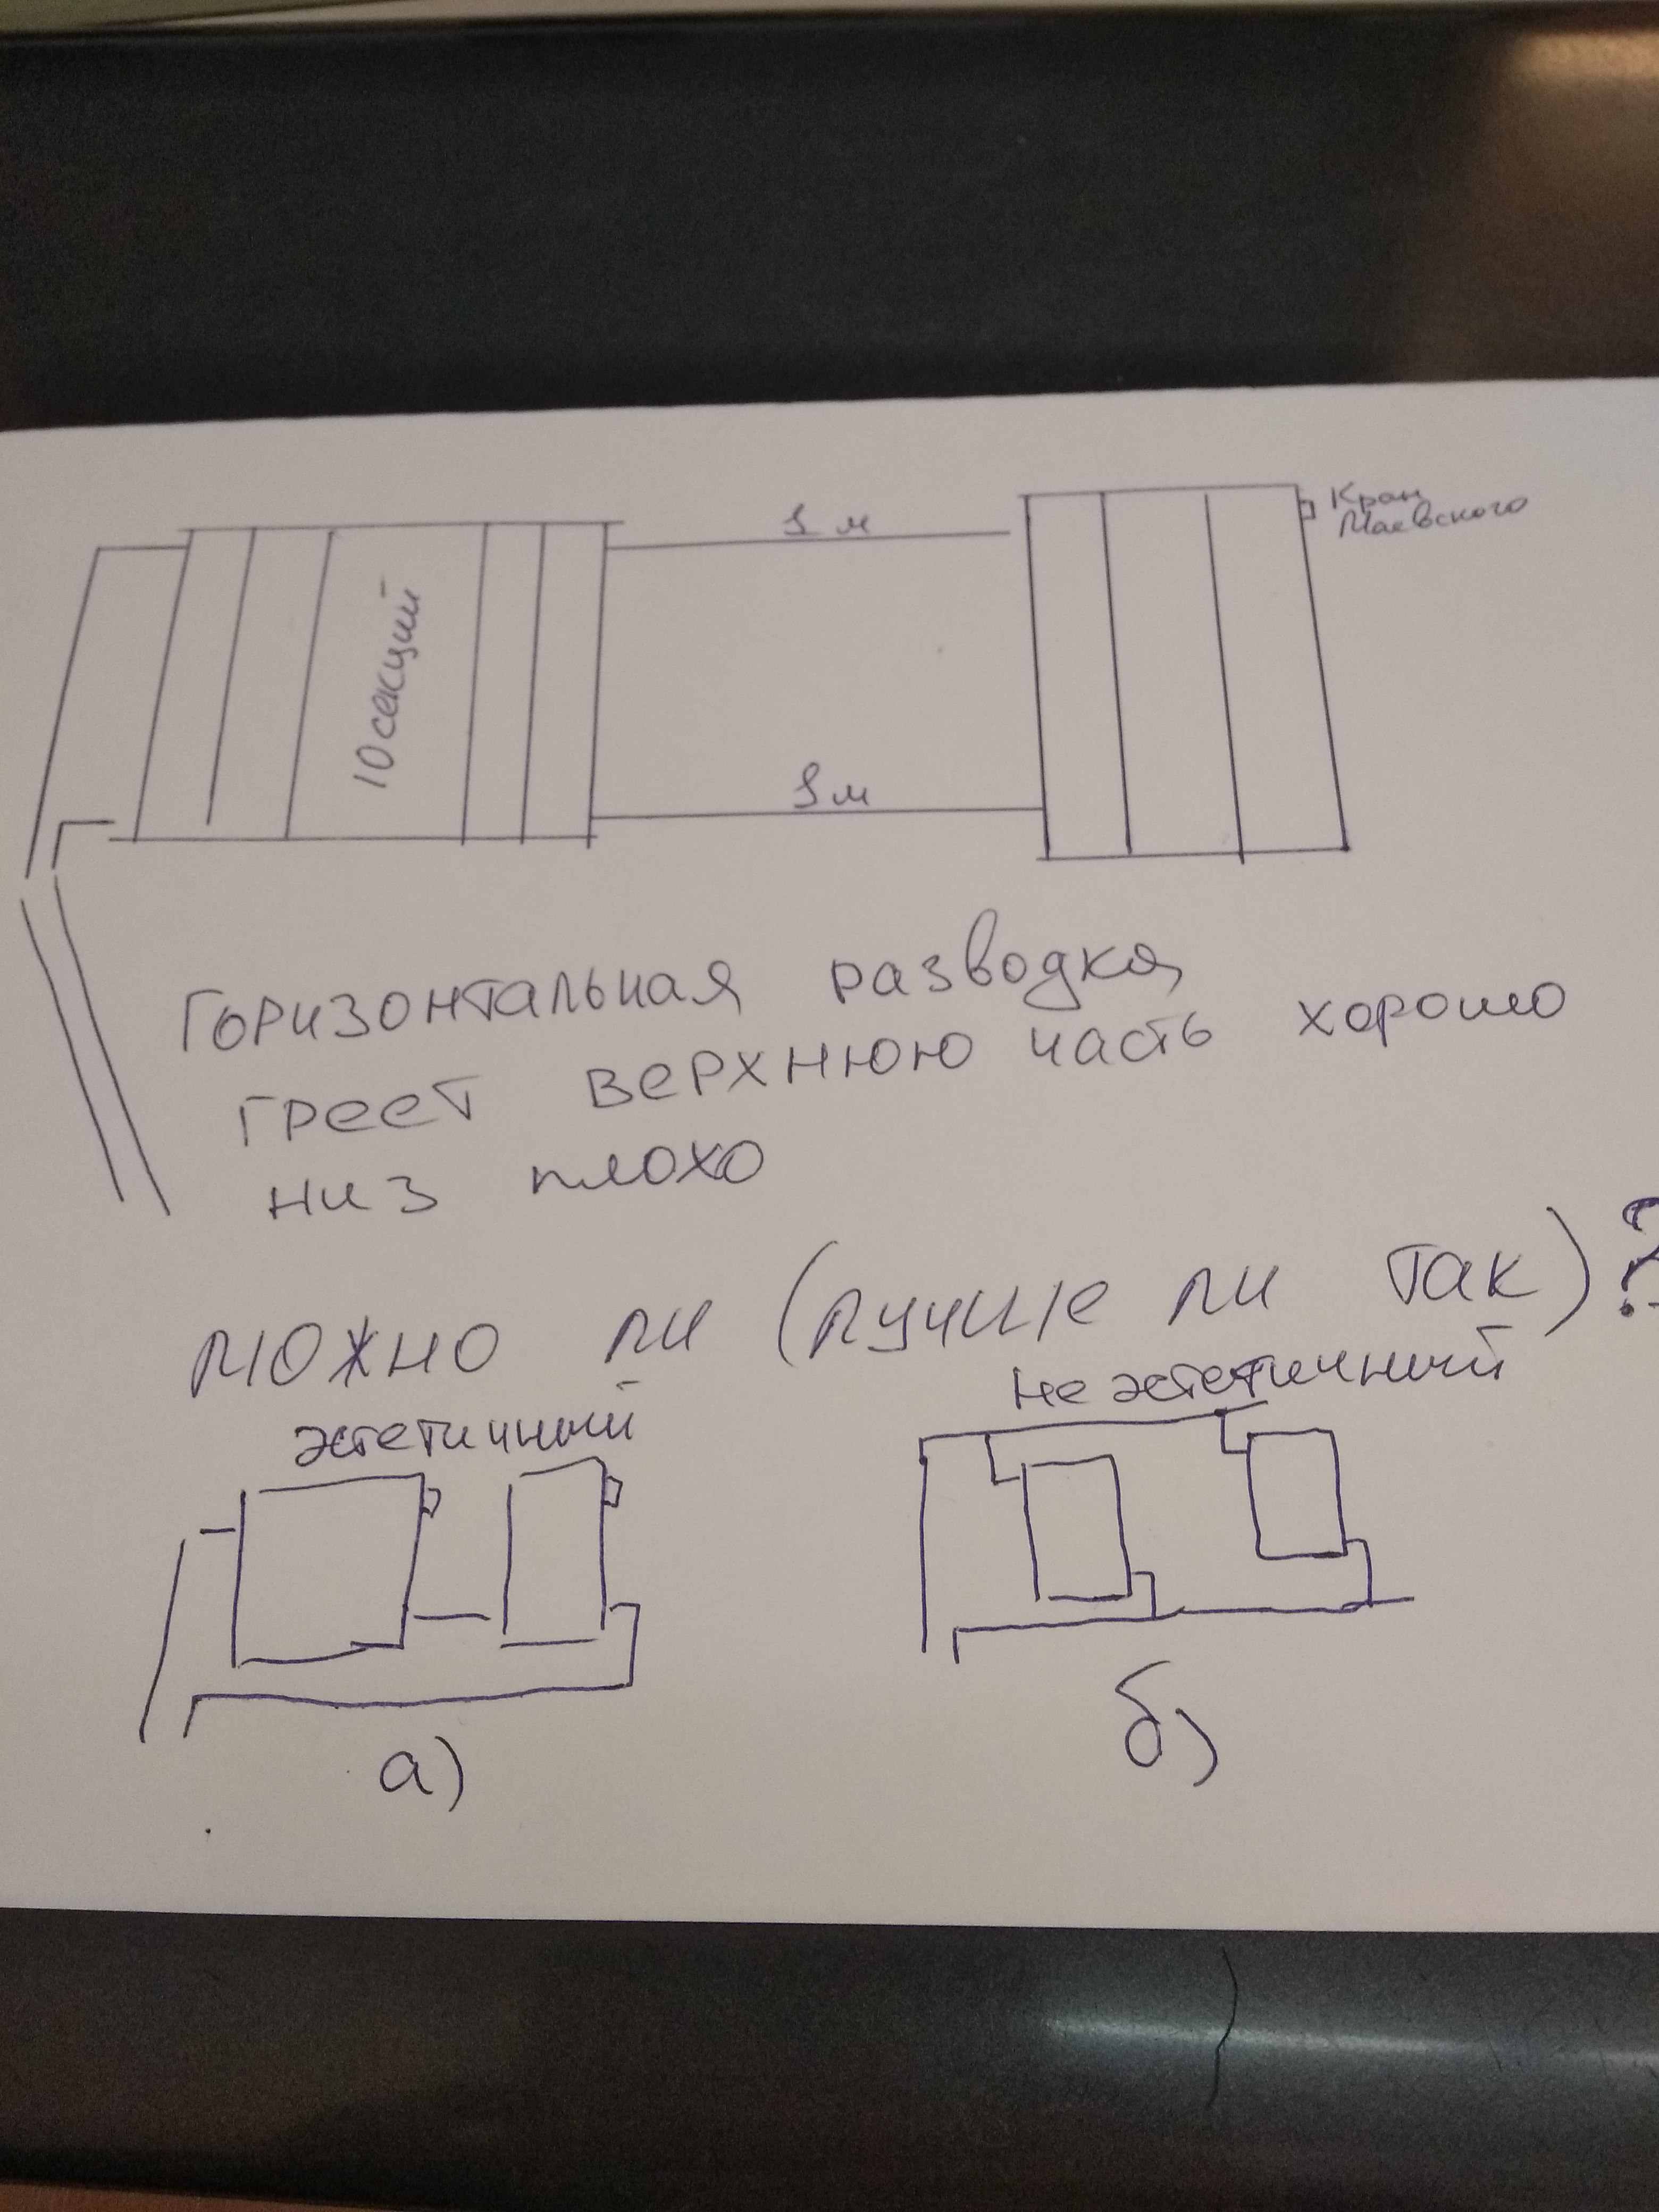 1 м
Кран
Маевского
10 секций
1 м
Горизонтальная разводка,
греет верхнюю часть хорошо
низ плохо
можно ли (лучше ли так)?
эстетичный
не эстетичный
а)
б)